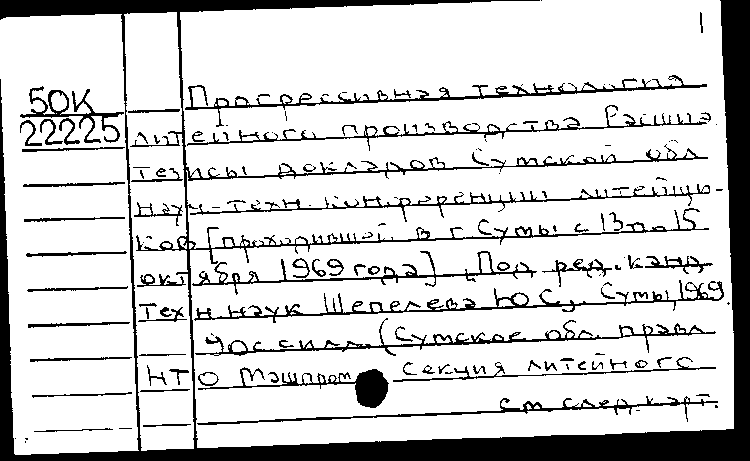 1
50К
22225
Прогрессивная технология
литейного производства Расшир
тезисы докладов Сумской обл
науч-техн. конференции литейщи-
ков [проходившей в г Сумы с 13 по 15
октября 1969 года] Под ред. канд
техн наук Шепелева Ю С. Сумы, 1969.
90с с илл. (Сумское обл. правл
НТО Машпром секция литейного
см. след. карт.